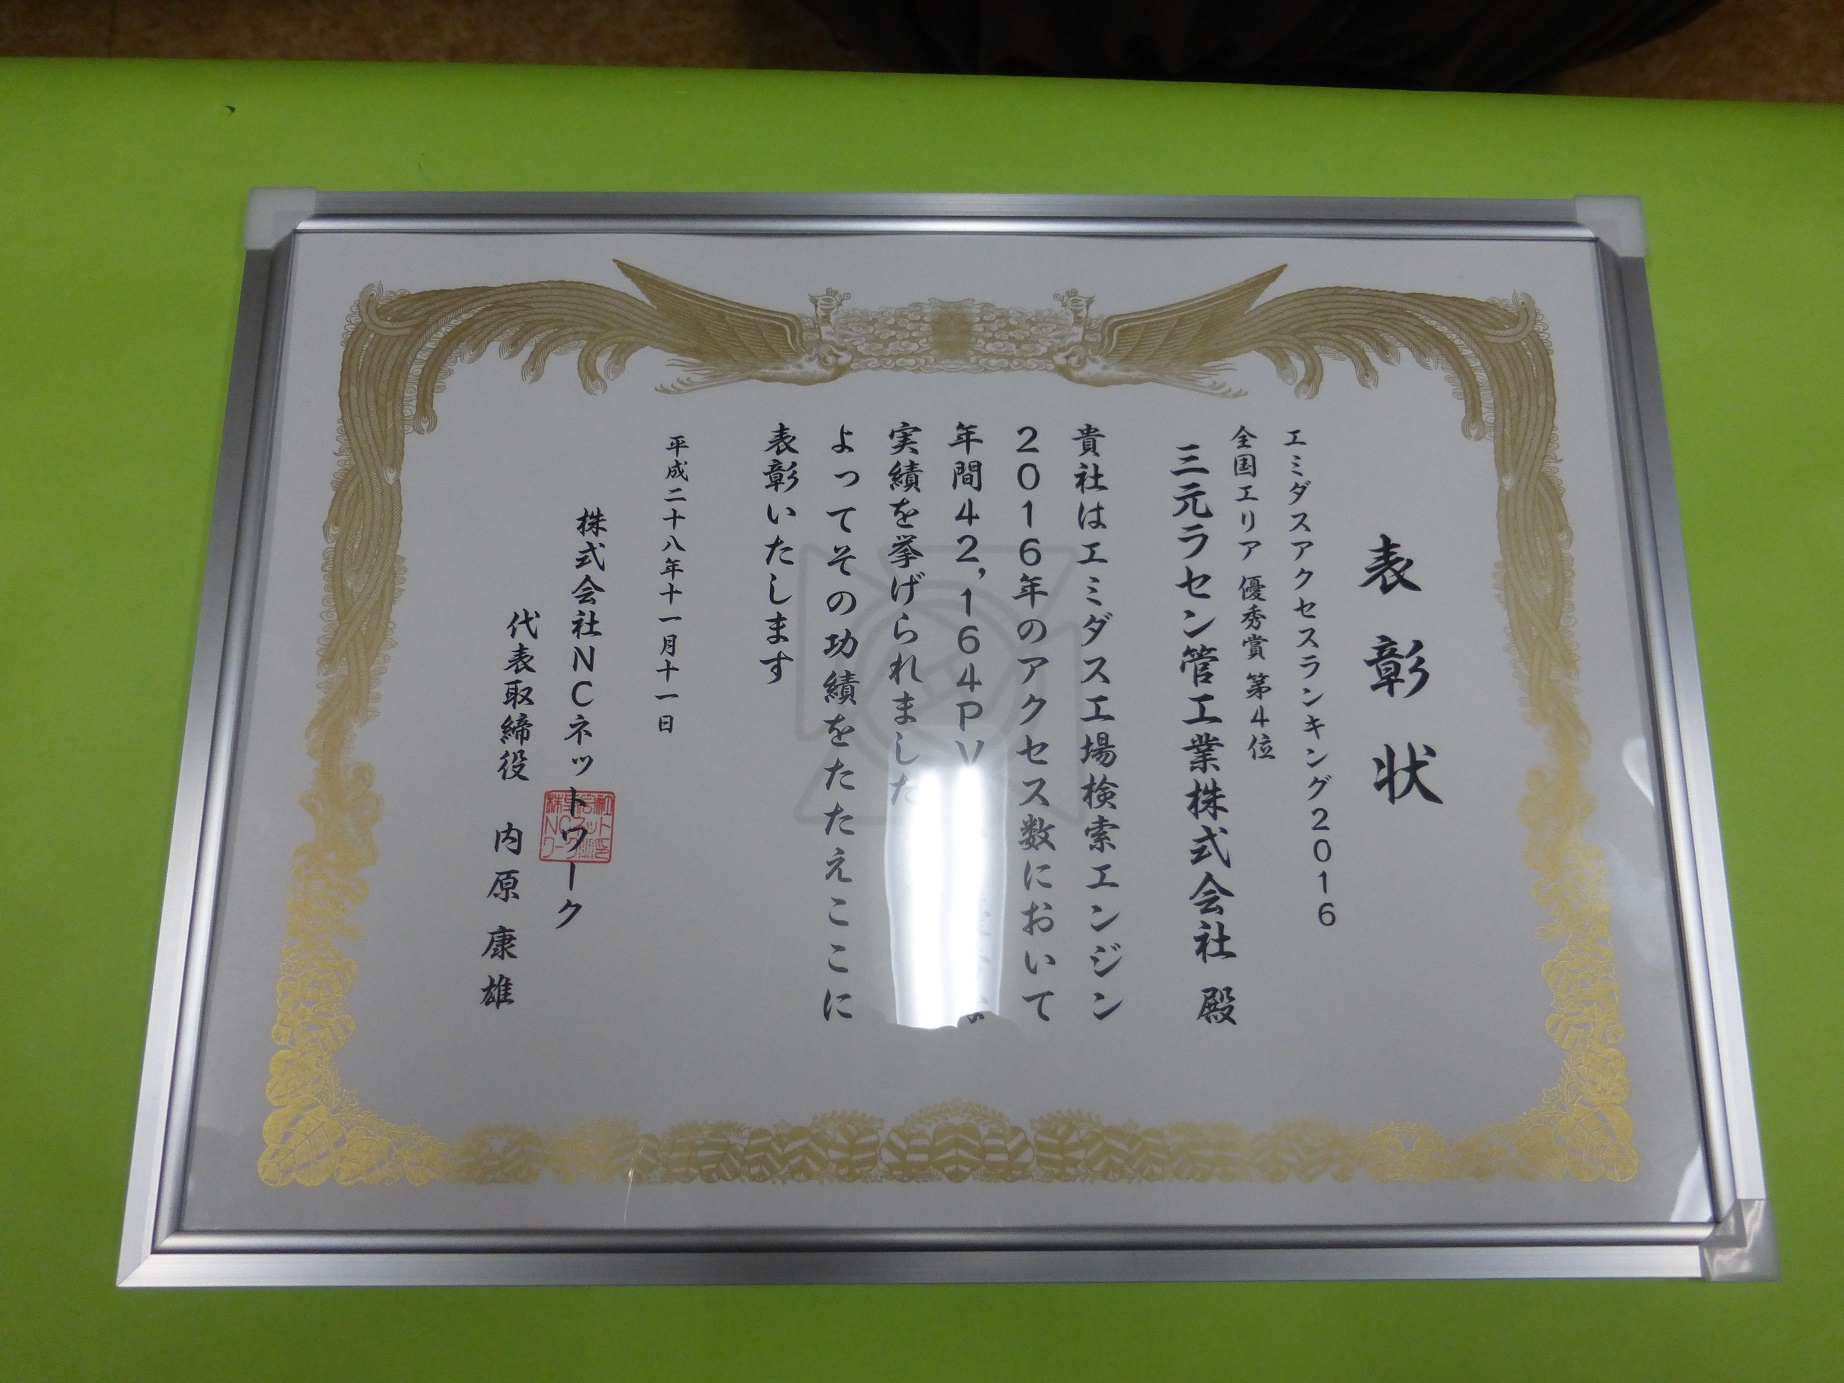 表彰状
エミダスアクセスランキング2016
全国エリア 優秀賞 第4位
三元ラセン管工業株式会社 殿
貴社はエミダス工場検索エンジン
2016年のアクセス数において
年間42,164PV
実績を挙げられました
よってその功績をたたえここに
表彰いたします
平成二十八年十一月十一日
株式会社NCネットワーク
代表取締役 内原康雄